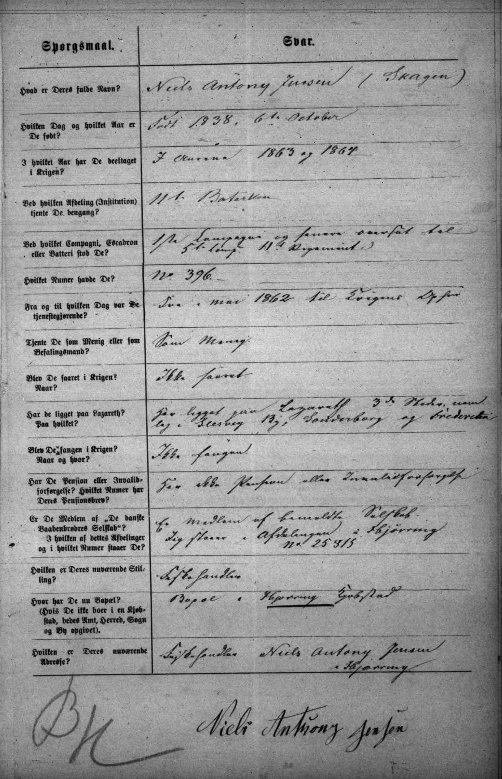 Spørgsmaal. Svar.
Hvad er Deres fulde Navn? Niels Antony Jensen (Skagen)
Hvilken Dag og hvilket Aar er
De født? Født 1838, 6te October
I hvilket Aar har De deeltaget
i Krigen? I Aarene 1863 og 1864
Ved hvilken Afdeling (Institution)
tjente De dengang? 11te Batailon
Ved hvilket Compagni, Escadron
eller Batteri stod De? 1ste Compagni og senere oversat til
5te Comp 11te Regiment
Hvilket Numer havde De? No 396
Fra og til hvilken Dag var De
tjenestgjørende? Fra mai 1862 til Krigens Ophør
Tjente De som Menig eller som
Befalingsmand? Som Menig
Blev De saaret i Krigen?
Naar? Ikke saaret
Har De ligget paa Lazareth?
Paa hvilket? Har ligget paa Lazareth 3de Steder,
i Slesvig By, Sønderborg og Fredericia
Blev De fangen i Krigen?
Naar og hvor? Ikke fangen
Har De Pension eller Invalid-
forsørgelse? Hvilket Numer har
Deres Pensionsbrev? Har ikke Pension eller Invalidforsørgelse
Er De Medlem af „De danske
Vaabenbrødres Selskab“?
I hvilken af dettes Afdelinger
og i hvilket Numer staaer De? Er medlem af bemeldte Selskab
Jeg staaer i Afdelingen i Hjørring
No 25313
Hvilken er Deres nuværende Stil-
ling? Fiskehandler
Hvor har De nu Bopæl?
(Hvis De ikke boer i en Kjøb-
stad, bedes Amt, Herred, Sogn
og By opgivet). Bopæl i Hjørring Kjøbstad
Hvilken er Deres nuværende
Adresse? Fiskehandler Niels Antony Jensen
i Hjørring
Niels Antony Jensen